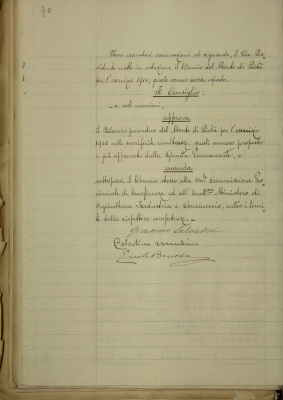 70
Non essendovi osservazioni al riguardo, il Vice-Pre-
sidente mette in votazione il bilancio del Monte di Pietà
per l'esercizio 1910, quale venne sopra esposto.
Il Consiglio:
a voti unanimi,
approva
il Bilancio preventivo del Monte di Pietà per l'esercizio
1910 nelle specifiche risultanze, quali vennero proposte
e già approvate dalla Giunta Permanente, e
manda
sottoporsi il bilancio stesso alla On. Commissione Pro-
vinciale di beneficenza ed all' Ministero di
Agricoltura Industria e Commercio, entro i limi-
ti delle rispettive competenze.
Giacomo Salvadori
Celestino